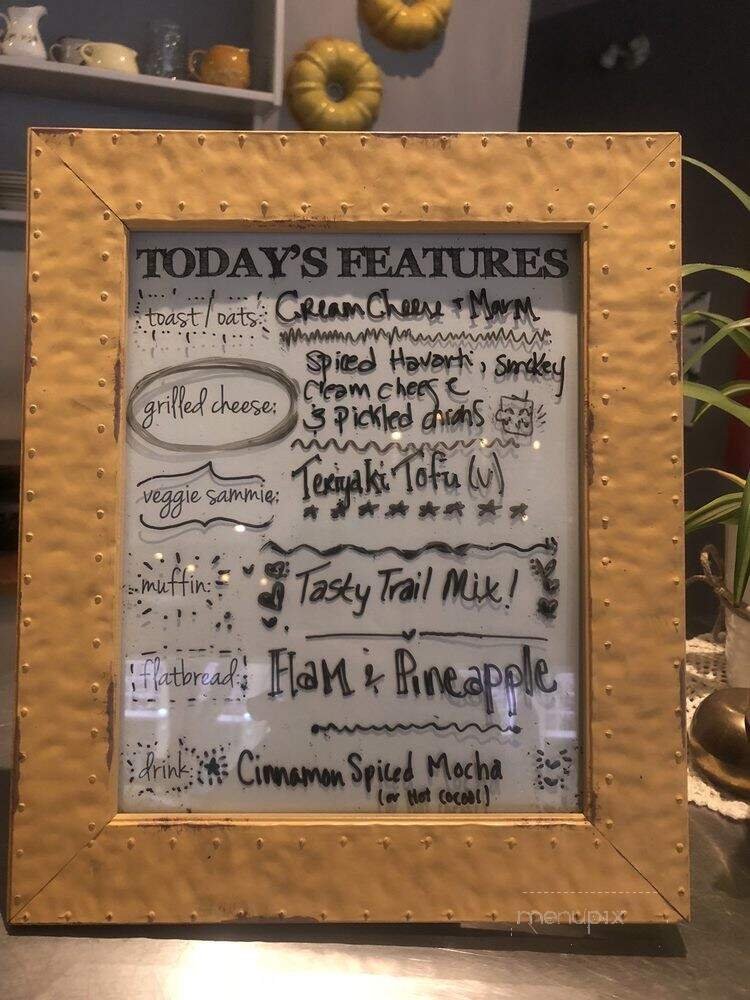 TODAY'S FEATURES
toast/oats: Cream Cheese + Marm
grilled cheese: Spiced Havarti, Smokey
Cream cheese
& pickled onions
veggie sammie: Teriyaki Tofu (v)
muffin: Tasty Trail Mix!
flatbread: Ham & Pineapple
drink: Cinnamon Spiced Mocha
(or Hot Cocoa!)
menupix